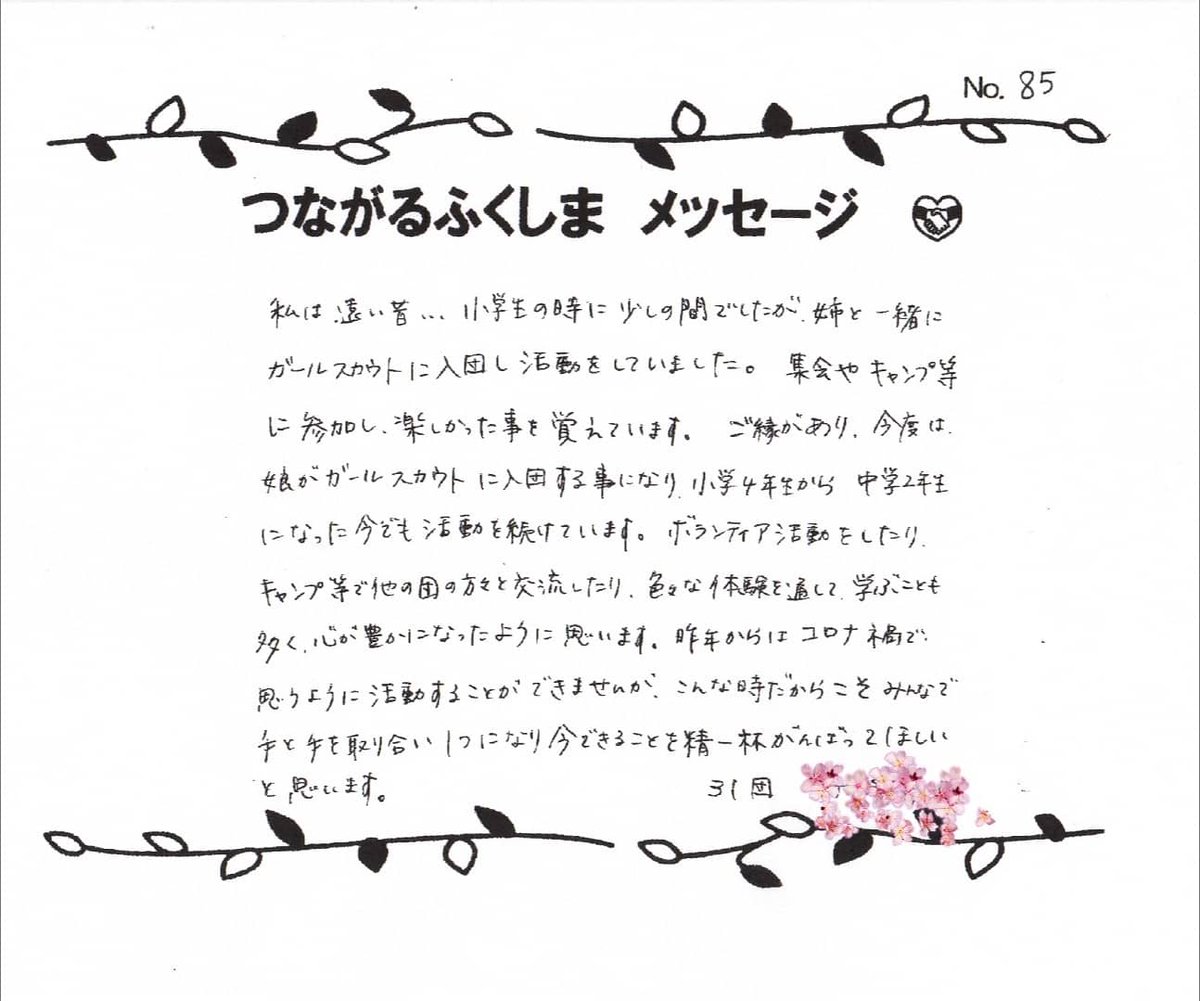 No. 85
つながるふくしま メッセージ
私は遠い昔... 小学生の時に少しの間でしたが、姉と一緒に
ガールスカウトに入団し活動をしていました。 集会やキャンプ等
に参加し、楽しかった事を覚えています。 ご縁があり、今度は、
娘がガールスカウトに入団する事になり、小学4年生から 中学2年生
になった今でも活動を続けています。ボランティア活動をしたり、
キャンプ等で他の団の方々と交流したり、色々な体験を通して、学ぶことも
多く、心が豊かになったように思います。昨年からはコロナ禍で、
思うように活動することができませんが、こんな時だからこそみんなで
手と手を取り合い1つになり今できることを精一杯がんばってほしい
と思います。
31団